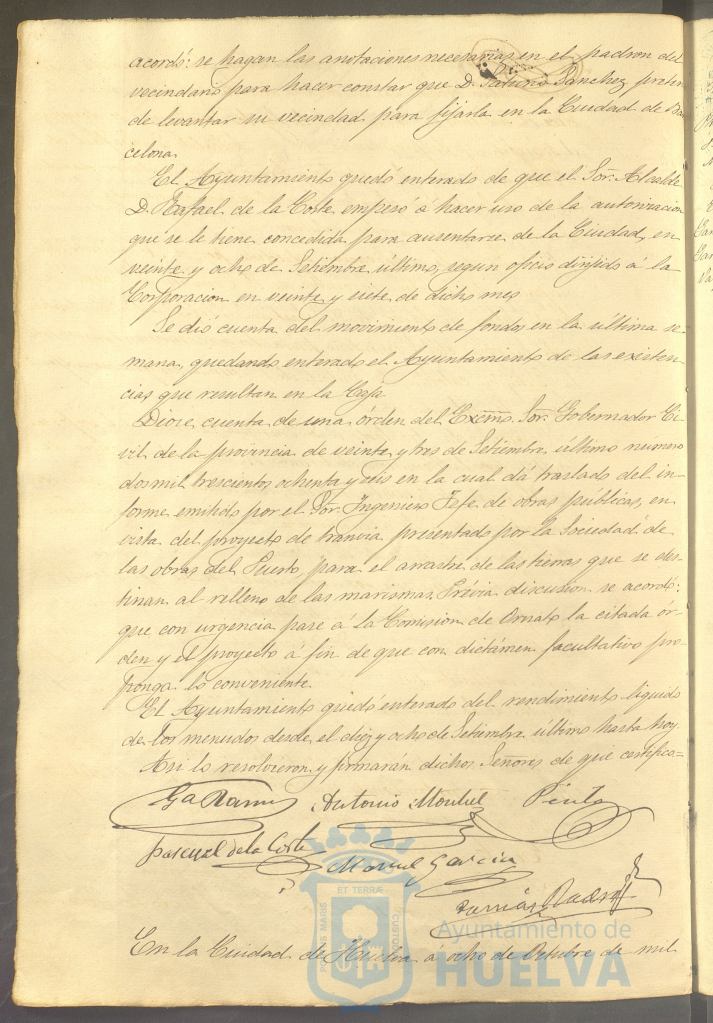 acordó: se hagan las anotaciones necesarias en el padron del
vecindario para hacer constar que D. Saturno Sanchez preten
de levantar su vecindad para fijarla en la Ciudad de Bar
celona.
El Ayuntamiento quedó enterado de que el Sor. Alcalde
D. Rafael de la Corte empesó á hacer uso de la autorizacion
que se le tiene concedida para ausentarse de la Ciudad, en
veinte y ocho de Setiembre último, segun oficio dirijido á la
Corporacion en veinte y siete de dicho mes
Se dió cuenta del movimiento de fondos en la última se
mana, quedando enterado el Ayuntamiento de las existen
cias que resultan en la Caja
Diose cuenta de una órden del Excmo. Sor. Gobernador Ci
vil de la provincia de veinte y tres de Setiembre último numero
dos mil trescientos ochenta y seis en la cual dá traslado del in
forme emitido por el Sor. Ingeniero Jefe de obras públicas, en
vista del proyecto de tranvia presentado por la Sociedad de
las obras del Puerto para el arrastre de las tierras que se des
tinan al relleno de las marismas. Prévia discusion se acordó:
que con urgencia pase á la Comision de Ornato la citada ór
den y el proyecto á fin de que con dictámen facultativo pro
ponga lo conveniente.
El Ayuntamiento quedó enterado del rendimiento liquido
de los menudos desde el diez y ocho de Setiembre último hasta hoy.
Asi lo resolvieron y firmaran dichos Señores de que certifico=
Antonio Pinto
Pascual de la Corte
Manuel Garcia
Tomás
En la Ciudad de Huelva á ocho de Octubre de mil
PORTUS MARIS ET TERRÆ CUSTODIA
Ayuntamiento de
HUELVA